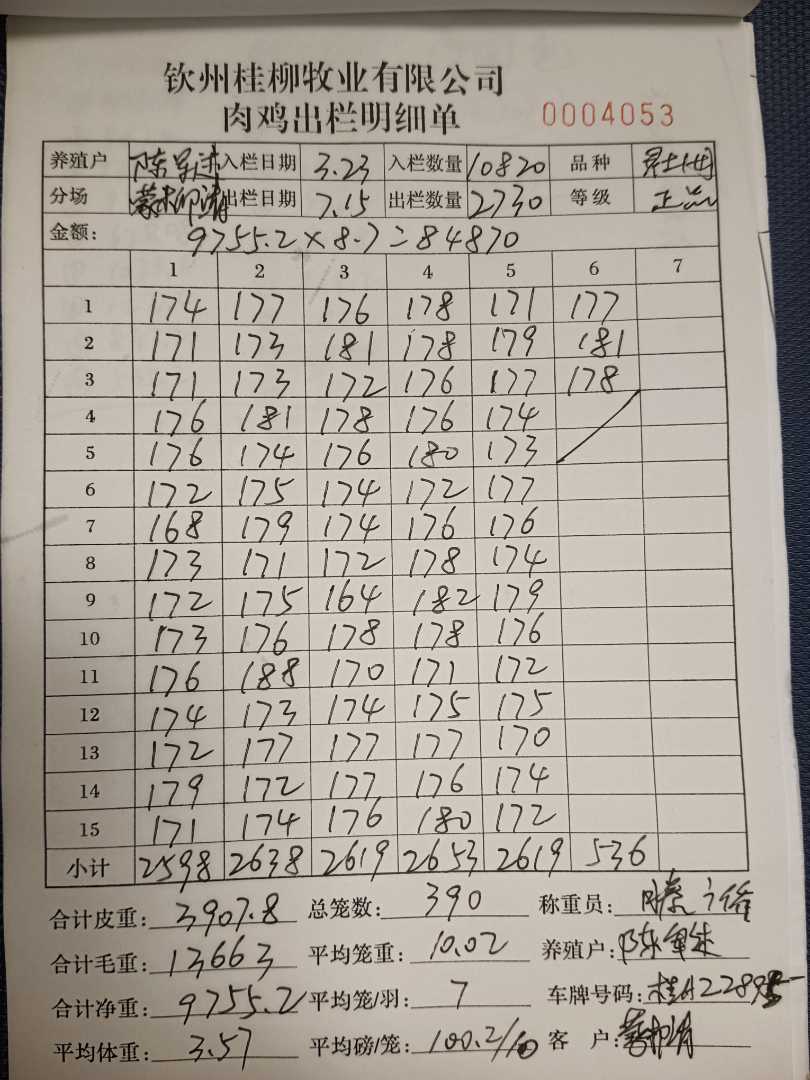 钦州桂柳牧业有限公司
肉鸡出栏明细单 0004053
养殖户 陈 入栏日期 3.23 入栏数量 10820 品种
分场 出栏日期 7.15 出栏数量 2730 等级 正品
金额: 9755.2×8.7=84870
1 2 3 4 5 6 7
1 174 177 176 178 171 177
2 171 173 181 178 179 181
3 171 173 172 176 177 178
4 176 181 178 176 174
5 176 174 176 180 173
6 172 175 174 172 177
7 168 179 174 176 176
8 173 171 172 178 174
9 172 175 164 182 179
10 173 176 178 178 176
11 176 188 170 171 172
12 174 173 174 175 175
13 172 177 177 177 170
14 179 172 177 176 174
15 171 174 176 180 172
小计 2598 2638 2619 2653 2619 536
合计皮重: 3907.8 总笼数: 390 称重员:
合计毛重: 13663 平均笼重: 10.02 养殖户: 陈
合计净重: 9755.2 平均笼/羽: 7 车牌号码: 桂A22895
平均体重: 3.57 平均磅/笼: 100.2/10 客 户: